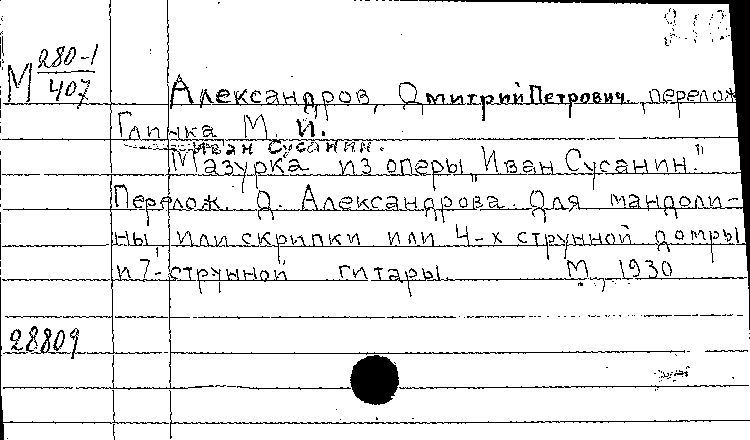 М 280-1
407
Александров, Дмитрий Петрович, перелож.
Глинка М. И.
Иван Сусанин.
Мазурка из оперы „Иван Сусанин."
Перелож. Д. Александрова. Для мандоли-
ны, или скрипки или 4-х струнной домры
и 7-струнной гитары. М., 1930
28809